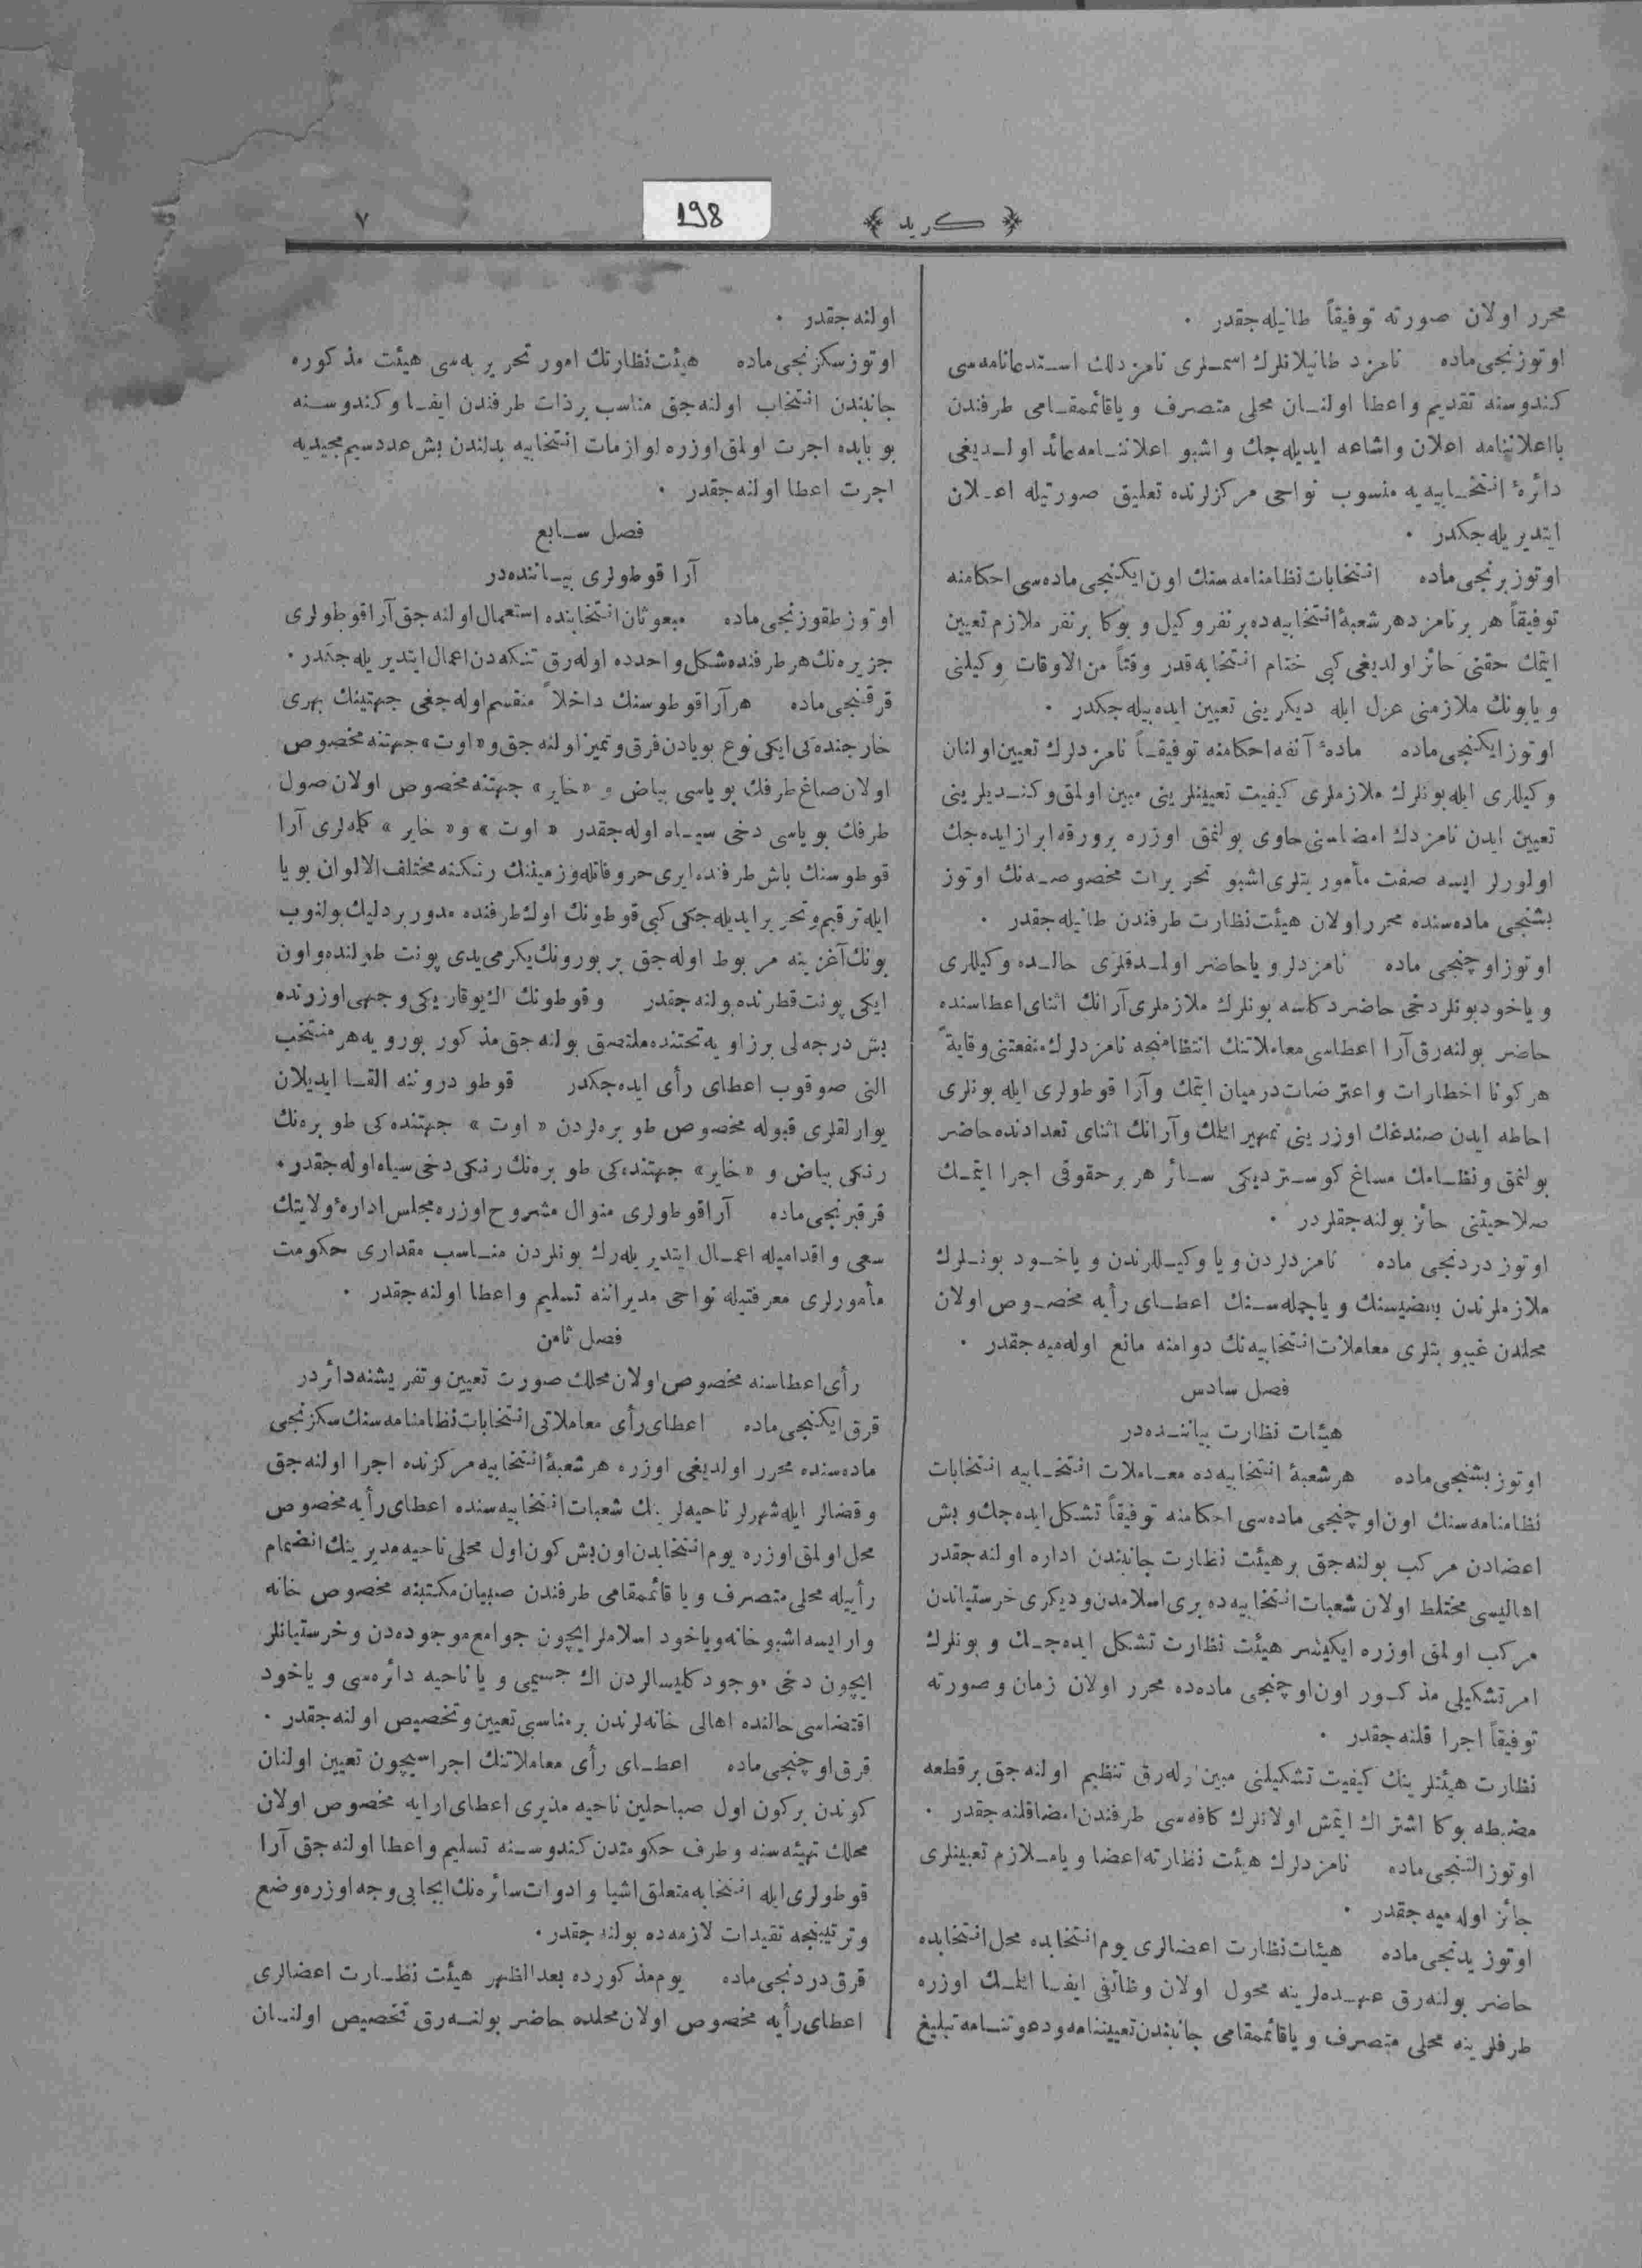 ﴿ كريد ﴾
198
٧
محرر اولان صورته توفيقاً طانيله‌جقدر ٠
اوتوزنجى ماده نامزد طانيلانلرك اسملرى نامزدلك استدعانامه‌سى
كندوسنه تقديم واعطا اولنان محلى متصرف وياقائممقامى طرفندن
بااعلاننامه اعلان واشاعه ايديله‌جك واشبو اعلاننامه عائد اولديغى
دائرۀ انتخابيه‌يه منسوب نواحى مركزلرنده تعليق صورتيله اعلان
ايتديريله‌جكدر ٠
اوتوز برنجى ماده انتخابات نظامنامه‌سنك اون ايكنجى ماده‌سى احكامنه
توفيقاً هر برنامزد هر شعبۀ انتخابيه‌ده برنفر وكيل و بوكا برنفر ملازم تعيين
ايتمك حقنى حائز اولديغى كبى ختام انتخابه‌قدر وقتاً من‌الاوقات وكيلنى
ويابونك ملازمنى عزل ايله ديكرينى تعيين ايده‌بيله‌جكدر ٠
اوتوز ايكنجى ماده مادۀ آنفه احكامنه توفيقاً نامزدلرك تعيين اولنان
وكيللرى ايله بونلرك ملازملرى كيفيت تعيينلرينى مبين اولمق وكنديلرينى
تعيين ايدن نامزدك امضاسنى حاوى بولنمق اوزره برورقه ابراز ايده‌جك
اولورلر ايسه صفت مأموريتلرى اشبو تحريرات مخصوصه‌نك اوتوز
بشنجى ماده‌سنده محرر اولان هيئت نظارت طرفندن طانيله‌جقدر ٠
اوتوز اوچنجى ماده نامزدلر وياحاضر اولمدقلرى حالده وكيللرى
وياخود بونلر دخى حاضر دكلسه بونلرك ملازملرى آرانك اثناى اعطاسنده
حاضر بولنه‌رق آرا اعطاسى معاملاتنك انتظامنجه نامزدلرك منفعتنى وقايةً
هركونا اخطارات واعتراضات درميان ايتمك وآرا قوطولرى ايله بونلرى
احاطه ايدن صندغك اوزرينى تمهير ايتمك وآرانك اثناى تعدادنده حاضر
بولنمق ونظامك مساغ كوستردیكى سائر هر برحقوقى اجرا ايتمك
صلاحيتنى حائز بولنه‌جقلردر ٠
اوتوز دردنجى ماده نامزدلردن ويا وكيللرندن وياخود بونلرك
ملازملرندن بعضيسنك وياجمله‌سنك اعطاى رأيه مخصوص اولان
محلدن غيبوبتلرى معاملات انتخابيه‌نك دوامنه مانع اوله‌ميه‌جقدر ٠
فصل سادس
هيئات نظارت بياننده‌در
اوتوز بشنجى ماده هر شعبۀ انتخابيه‌ده معاملات انتخابيه انتخابات
نظامنامه‌سنك اون اوچنجى ماده‌سى احكامنه توفيقاً تشكل ايده‌جك وبش
اعضادن مركب بولنه‌جق برهيئت نظارت جانبندن اداره اولنه‌جقدر
اهاليسى مختلط اولان شعبات انتخابيه‌ده برى اسلامدن وديكرى خرستياندن
مركب اولمق اوزره ايكيشر هيئت نظارت تشكل ايده‌جك و بونلرك
امر تشكيلى مذكور اون اوچنجى ماده‌ده محرر اولان زمان وصورته
توفيقاً اجرا قلنه‌جقدر ٠
نظارت هيئتلرينك كيفيت تشكيلنى مبين اوله‌رق تنظيم اولنه‌جق برقطعه
مضبطه بوكا اشتراك ايتمش اولانلرك كافه‌سى طرفندن امضاقلنه‌جقدر ٠
اوتوز التنجى ماده نامزدلرك هيئت نظارته اعضا وياملازم تعيينلرى
جائز اوله‌ميه‌جقدر ٠
اوتوز يدنجى ماده هيئات نظارت اعضالرى يوم انتخابده محل انتخابده
حاضر بولنه‌رق عهده‌لرينه محول اولان وظائفى ايفا ايتمك اوزره
طرفلرينه محلى متصرف وياقائممقامى جانبندن تعييننامه ودعوتنامه تبليغ
اولنه‌جقدر ٠
اوتوز سكزنجى ماده هيئت نظارتك امور تحريريه‌سى هيئت مذكوره
جانبندن انتخاب اولنه‌جق مناسب برذات طرفندن ايفا وكندوسنه
بوبابده اجرت اولمق اوزره لوازمات انتخابيه بدلندن بش عدد سيم مجيديه
اجرت اعطا اولنه‌جقدر ٠
فصل سابع
آرا قوطولرى بياننده‌در
اوتوز طقوزنجى ماده مبعوثان انتخابنده استعمال اولنه‌جق آراقوطولرى
جزيره‌نك هر طرفنده شكل واحدده اوله‌رق تنكه‌دن اعمال ايتديريله‌جكدر ٠
قرقنجى ماده هر آراقوطوسنك داخلاً منقسم اوله‌جغى جهتينك بهرى
خارجنده‌كى ايكى نوع بويادن فرق وتميز اولنه‌جق و«اوت» جهتنه مخصوص
اولان صاغ طرفك بوياسى بياض و «خاير» جهتنه مخصوص اولان صول
طرفك بوياسى دخى سياه اوله‌جقدر «اوت» و«خاير» كله‌لرى آرا
قوطوسنك باش طرفنده ايرى حروفاتله وزميننك رنكنه مختلف الالوان بويا
ايله ترقيم وتحرير ايديله‌جكى كبى قوطونك اوك طرفنده مدور بردليك بولنوب
بونك آغزينه مربوط اوله‌جق بر بورونك يكرمى‌يدى پونت طولنده واون
ايكى پونت قطرنده بولنه‌جقدر وقوطونك اك يوقاريكى وجهى اوزرنده
بش درجه‌لى برزاويه تحتنده ملتصق بولنه‌جق مذكور بورويه هر منتخب
النى صوقوب اعطاى رأى ايده‌جكدر قوطو دروننه القا ايديلان
يوارلقلرى قبوله مخصوص طوبره‌لردن «اوت» جهتنده‌كى طوبره‌نك
رنكى بياض و «خاير» جهتنده‌كى طوبره‌نك رنكى دخى سياه اوله‌جقدر ٠
قرقبرنجى ماده آراقوطولرى منوال مشروح اوزره مجلس ادارۀ ولايتك
سعى واقداميله اعمال ايتديريله‌رك بونلردن مناسب مقدارى حكومت
مأمورلرى معرفتيله نواحى مديراننه تسليم واعطا اولنه‌جقدر ٠
فصل ثامن
رأى اعطاسنه مخصوص اولان محلك صورت تعيين وتفريشنه دائردر
قرق ايكنجى ماده اعطاى رأى معاملاتى انتخابات نظامنامه‌سنك سكزنجى
ماده‌سنده محرر اولديغى اوزره هر شعبۀ انتخابيه مركزنده اجرا اولنه‌جق
وقضالر ايله شهرلر ناحيه‌لرينك شعبات انتخابيه‌سنده اعطاى رأيه مخصوص
محل اولمق اوزره يوم انتخابدن اون بش كون اول محلى ناحيه مديرينك انضمام
رأييله محلى متصرف ويا قائممقامى طرفندن صبيان مكتبنه مخصوص خانه
وار ايسه اشبو خانه وياخود اسلاملر ايچون جوامع موجوده‌دن وخرستيانلر
ايچون دخى موجود كليسالردن اك جسيمى ويا ناحيه دائره‌سى وياخود
اقتضاسى حالنده اهالى خانه‌لرندن برمناسبى تعيين وتخصيص اولنه‌جقدر ٠
قرق اوچنجى ماده اعطاى رأى معاملاتنك اجراسيچون تعيين اولنان
كوندن بركون اول صباحلين ناحيه مديرى اعطاى ارايه مخصوص اولان
محلك تهيئه‌سنه وطرف حكومتدن كندوسنه تسليم واعطا اولنه‌جق آرا
قوطولرى ايله انتخابه متعلق اشيا وادوات سائره‌نك ايجابى وجه اوزره وضع
وترتيبنجه تقيدات لازمه‌ده بولنه‌جقدر ٠
قرق دردنجى ماده يوم مذكورده بعدالظهر هيئت نظارت اعضالرى
اعطاى رأيه مخصوص اولان محلده حاضر بولنه‌رق تخصيص اولنان